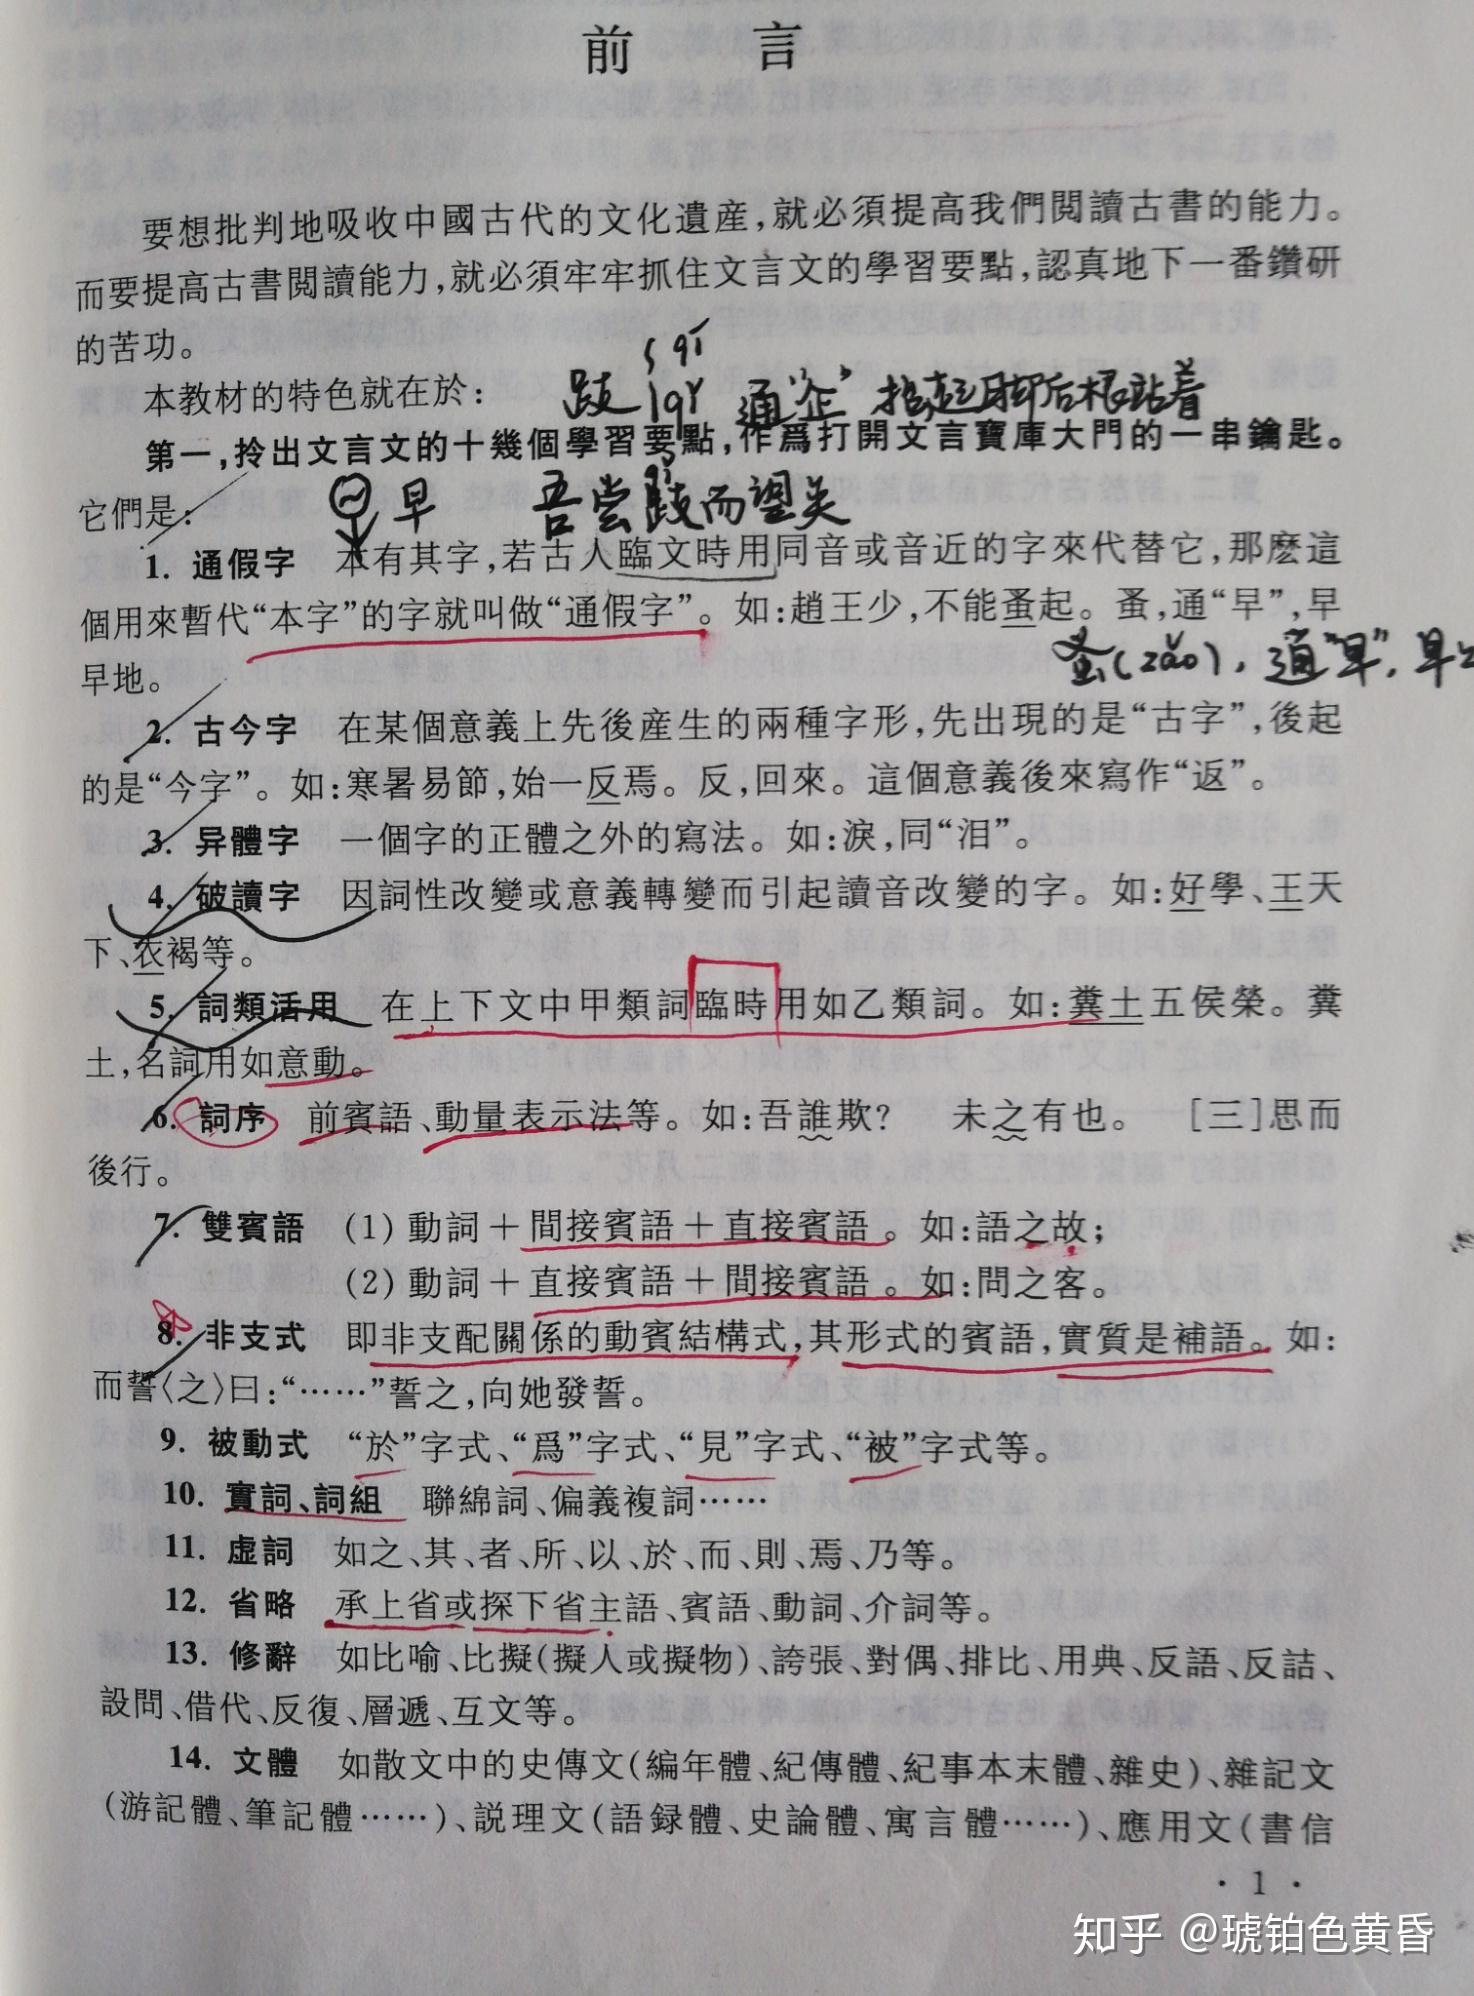 前 言
要想批判地吸收中國古代的文化遺産,就必須提高我們閲讀古書的能力。
而要提高古書閲讀能力,就必須牢牢抓住文言文的學習要點,認真地下一番鑽研
的苦功。
本教材的特色就在於:
跂 qǐ qì 通“企” 抬起脚后根站着
第一,拎出文言文的十幾個學習要點,作爲打開文言寶庫大門的一串鑰匙。
它們是:
早 吾尝跂而望矣
1. 通假字 本有其字,若古人臨文時用同音或音近的字來代替它,那麽這
個用來暫代“本字”的字就叫做“通假字”。如:趙王少,不能蚤起。蚤,通“早”,早
蚤(zǎo),通“早”,早
早地。
2. 古今字 在某個意義上先後産生的兩種字形,先出現的是“古字”,後起
的是“今字”。如:寒暑易節,始一反焉。反,回來。這個意義後來寫作“返”。
3. 异體字 一個字的正體之外的寫法。如:淚,同“泪”。
4. 破讀字 因詞性改變或意義轉變而引起讀音改變的字。如:好學、王天
下、衣褐等。
5. 詞類活用 在上下文中甲類詞臨時用如乙類詞。如:糞土五侯榮。糞
土,名詞用如意動。
6. 詞序 前賓語、動量表示法等。如:吾誰欺? 未之有也。 [三]思而
後行。
7. 雙賓語 (1) 動詞+間接賓語+直接賓語。如:語之故;
(2) 動詞+直接賓語+間接賓語。如:問之客。
8. 非支式 即非支配關係的動賓結構式,其形式的賓語,實質是補語。如:
而誓〈之〉曰:“……”誓之,向她發誓。
9. 被動式 “於”字式、“爲”字式、“見”字式、“被”字式等。
10. 實詞、詞組 聯綿詞、偏義複詞……
11. 虚詞 如之、其、者、所、以、於、而、則、焉、乃等。
12. 省略 承上省或探下省主語、賓語、動詞、介詞等。
13. 修辭 如比喻、比擬(擬人或擬物)、誇張、對偶、排比、用典、反語、反詰、
設問、借代、反復、層遞、互文等。
14. 文體 如散文中的史傳文(編年體、紀傳體、紀事本末體、雜史)、雜記文
(游記體、筆記體……)、説理文(語録體、史論體、寓言體……)、應用文(書信
· 1 ·
知乎 @琥铂色黄昏